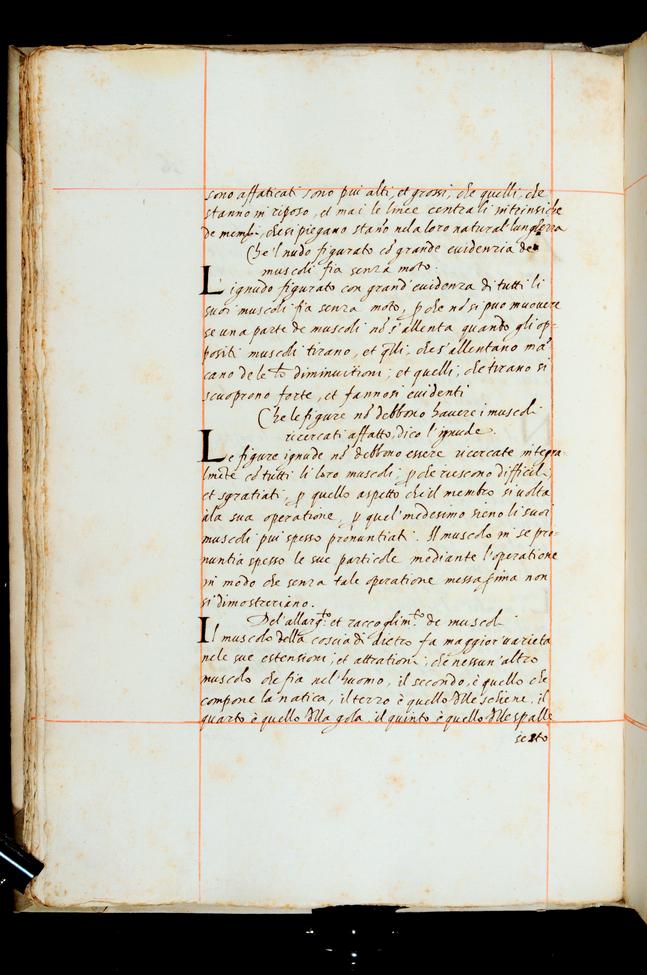 sono affaticati sono piú alti, et grossi, che quelli, che
stanno in riposo, et mai le linee centrali intrinsiche
de membri, che si piegano stano nela loro natural' lungheza
Che 'l nudo figurato cō grande euidenzia de
muscoli fia senza moto.
L'ignudo figurato con grand' euidenza di tutti li
suoi muscoli fia senza moto, p che nō si puo muouere
se una parte de muscoli nō s'allenta quando gli op-
positi muscoli tirano, et q̄lli, che s'allentano mā
cano de le tō diminuitioni; et quelli, che tirano si
scuoprono forte, et fannosi euidenti
Che le figure nō debbono hauere i muscoli
ricercati affatto, dico l'ignude.
Le figure ignude nō debbono essere ricercate integra-
lmēte cō tutti li loro muscoli, p che riescono difficili,
et sgratiati, p quello aspetto che il membro si uolta
ala sua operatione, p quel' medesimo sieno li suoi
muscoli piú spesso pronuntiati. Il muscolo in se pro-
nuntia spesso le sue particole mediante l'operatione
in modo che senza tale operatione in essa prima non
si dimostreriano.
Del' allarg.to et raccoglim.to de muscoli
Il muscolo della coscia di dietro fa maggior' uarieta
nele sue estensioni, et attrationi, che nessun' altro
muscolo che sia nel' huomo, il secondo, è quello che
compone la natica, il terzo è quello dlle schiene, il
quarto è quello dlla gola, il quinto è quello dlle spalle
sesto